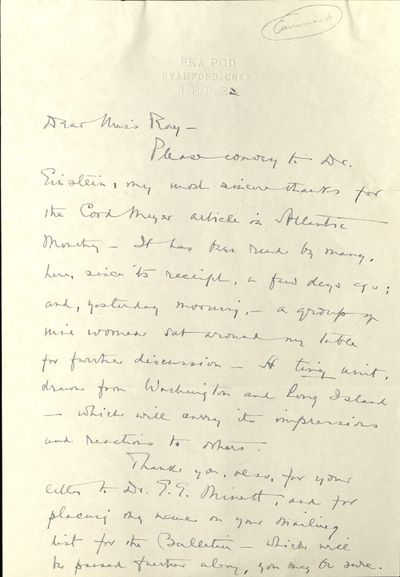 PEA POD
STAMFORD, CONN.
R. F. D. 2
Dear Miss Ray –
Please convey to Dr.
Einstein, my most sincere thanks for
the Cord Meyer article in Atlantic
Monthly – It has been read by many,
here, since its receipt, a few days ago;
and, yesterday morning, – a group of
nine women sat around my table
for further discussion – A tiny unit,
drawn from Washington and Long Island
– which will carry its impressions
and reactions to others.
Thank you, also, for your
letter to Dr. E. E. and for
placing my name on your mailing
list for the Bulletin – which will
be passed further along, you may be sure.